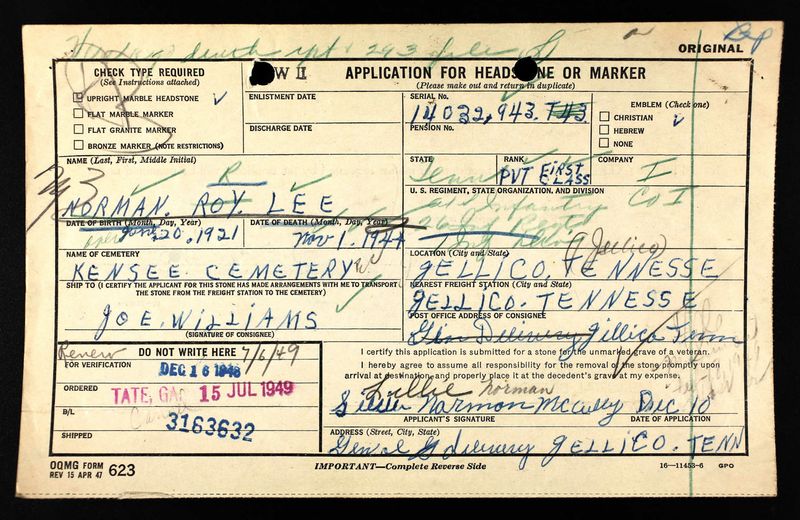 death rpt 293 file
ORIGINAL
CHECK TYPE REQUIRED
(See Instructions attached)
UPRIGHT MARBLE HEADSTONE
FLAT MARBLE MARKER
FLAT GRANITE MARKER
BRONZE MARKER (NOTE RESTRICTIONS)
W II
APPLICATION FOR HEADSTONE OR MARKER
(Please make out and return in duplicate)
ENLISTMENT DATE
DISCHARGE DATE
SERIAL No.
14032,943. T43
PENSION No.
EMBLEM (Check one)
CHRISTIAN
HEBREW
NONE
NAME (Last, First, Middle Initial)
R
NORMAN. ROY. LEE
STATE
Tenn
RANK
PVT FIRST CLASS
COMPANY
I
U. S. REGIMENT, STATE ORGANIZATION, AND DIVISION
Co I
Infantry
DATE OF BIRTH (Month, Day, Year)
20. 1921
DATE OF DEATH (Month, Day, Year)
Nov 1. 1944
NAME OF CEMETERY
KENSEE CEMETERY
LOCATION (City and State)
(Jellico)
GELLICO. TENNESSE
SHIP TO (I CERTIFY THE APPLICANT FOR THIS STONE HAS MADE ARRANGEMENTS WITH ME TO TRANSPORT THE STONE FROM THE FREIGHT STATION TO THE CEMETERY)
JOE. WILLIAMS
(SIGNATURE OF CONSIGNEE)
NEAREST FREIGHT STATION (City and State)
GELLICO. TENNESSE
POST OFFICE ADDRESS OF CONSIGNEE
Gen Delivery Jillico Tenn
DO NOT WRITE HERE
Renew
7/6/49
FOR VERIFICATION
DEC 16 1948
ORDERED
TATE, GA.
15 JUL 1949
B/L
3163632
SHIPPED
I certify this application is submitted for a stone for the unmarked grave of a veteran.
I hereby agree to assume all responsibility for the removal of the stone promptly upon arrival at destination, and properly place it at the decedent's grave at my expense.
Lillie Norman
Norman McCully Dec 10
APPLICANT'S SIGNATURE
DATE OF APPLICATION
ADDRESS (Street, City, State)
delivery GELLICO. TENN
OQMG FORM 623
REV 15 APR 47
IMPORTANT—Complete Reverse Side
16—11453-6 GPO